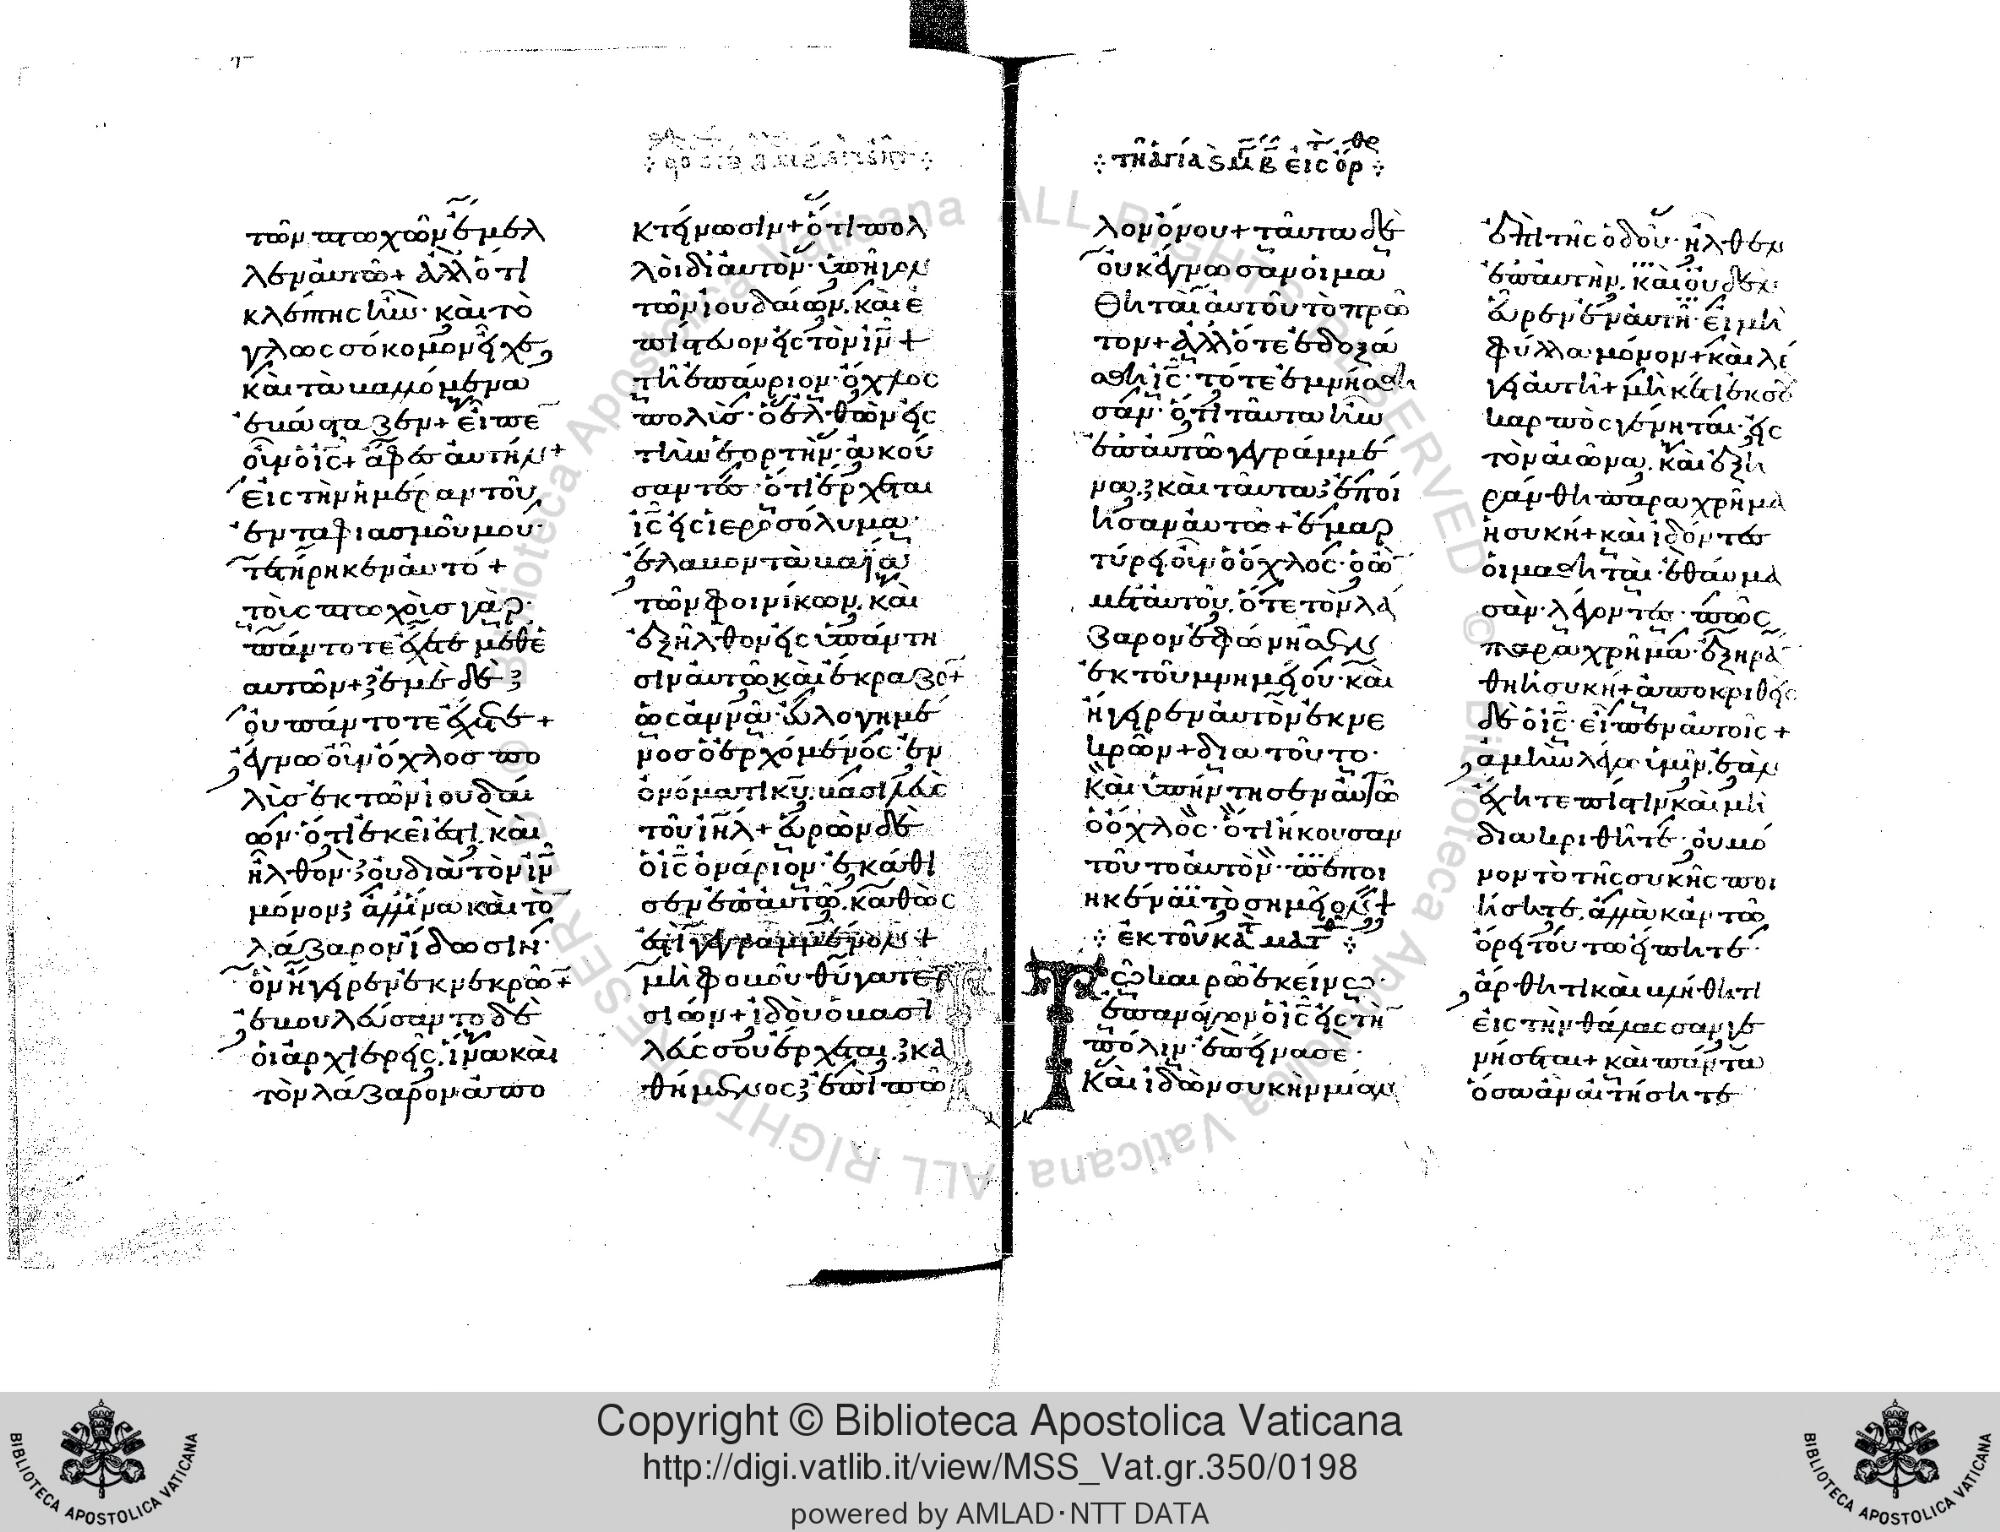 τῶν πτωχῶν ἔμελ
λεν αὐτῶ + ἀλλ' ὅτι
κλέπτης ἦν· καὶ τὸ
γλωσσόκομον εἶχε,
καὶ τὰ βαλλόμενα
ἐβάσταζεν + εἶπε
οὖν ὁ ις + ἄφες αὐτὴν +
εἰς τὴν ἡμέραν τοῦ
ἐνταφιασμοῦ μου·
τετήρηκεν αὐτό +
τοὺς πτωχοὺς γὰρ·
πάντοτε ἔχετε μεθ' ἑ
αυτῶν + ἐμὲ δὲ
οὐ πάντοτε ἔχετε +
ἔγνω οὖν ὄχλος πο
λὺς ἐκ τῶν ἰουδαί
ων· ὅτι ἐκεῖ ἐστι, καὶ
ἦλθον· οὐ διὰ τὸν ιν
μόνον ἀλλ' ἵνα καὶ τὸ
λάζαρον ἴδωσιν·
ὃν ἤγειρεν ἐκ νεκρῶ +
ἐβουλεύσαντο δὲ
οἱ ἀρχιερεῖς, ἵνα καὶ
τὸν λάζαρον ἀπο
κτείνωσιν + ὅτι πολ
λοὶ δι' αὐτὸν· ὑπῆγον
τῶν ἰουδαίων, καὶ ἐ
πίστευον εἰς τὸν ιν +
τῆ ἐπαύριον· ὄχλος
πολὺς· ὁ ἐλθὼν εἰς
τὴν ἑορτὴν· ἀκού
σαντες· ὅτι ἔρχεται
ις εἰς ἱεροσόλυμα·
ἔλαβον τὰ βαΐα
τῶν φοινίκων, καὶ
ἐξῆλθον εἰς ὑπάντη
σιν αὐτῶ καὶ ἔκραζο +
ὡσαννά· εὐλογημέ
νος ὁ ἐρχόμενος· ἐν
ὀνόματι κυ, βασιλεὺς
τοῦ ιηλ + εὑρὼν δὲ
ὁ ις ὀνάριον· ἐκάθι
σεν ἐπ' αὐτῶ, καθὼς
ἐστὶ γεγραμμένον +
μὴ φοβοῦ θύγατερ
σιών + ἰδοὺ ὁ βασι
λεύς σου ἔρχεται, κα
θήμενος ἐπὶ πῶ
τῆ ἁγία μ β εἰς ὄρθ
λον ὄνου + ταῦτα δὲ
οὐκ ἔγνωσαν οἱ μα
θηταὶ αὐτοῦ τὸ πρῶ
τον + ἀλλ' ὅτε ἐδοξά
σθη ις· τότε ἐμνήσθη
σαν· ὅτι ταῦτα ἦν
ἐπ' αὐτῶ γεγραμμέ
να, καὶ ταῦτα ἐποί
ησαν αὐτῶ + ἐμαρ
τύρει οὖν ὁ ὄχλος· ὁ ὢ
μετ' αὐτοῦ, ὅτε τὸν λά
ζαρον ἐφώνησεν
ἐκ τοῦ μνημείου· καὶ
ἤγειρεν αὐτὸν ἐκ νε
κρῶν + διὰ τοῦτο·
καὶ ὑπήντησεν αὐτῶ
ὁ ὄχλος· ὅτι ἤκουσαν
τοῦτο αὐτὸν· πεποι
ηκέναι τὸ σημεῖον +
ἐκ τοῦ κατ ματ
Τῶ καιρῶ ἐκείνω·
ἐπανάγων ὁ ις εἰς τὴ
πόλιν· ἐπείνασε·
καὶ ἰδὼν συκῆν μίαν
ἐπὶ τῆς ὁδοῦ· ἦλθεν
ἐπ' αὐτὴν, καὶ οὐδὲν
εὗρεν ἐν αὐτῆ· εἰ μὴ
φύλλα μόνον + καὶ λέ
γει αὐτῆ + μηκέτι ἐκ σοῦ
καρπὸς γένηται· εἰς
τὸν αἰῶνα, καὶ ἐξη
ράνθη παραχρῆμα
ἡ συκῆ + καὶ ἰδόντες
οἱ μαθηταὶ· ἐθαύμα
σαν· λέγοντες· πῶς
παραχρῆμα· ἐξηρά
θη ἡ συκῆ + ἀποκριθεὶς
δὲ ὁ ις· εἶπεν αὐτοῖς +
ἀμὴν λέγω ὑμῖν, ἐὰν
ἔχητε πίστιν καὶ μὴ
διακριθῆτε· οὐ μό
νον τὸ τῆς συκῆς ποι
ήσητε, ἀλλὰ κἂν τῶ
ὄρει τούτω εἴπητε·
ἄρθητι καὶ βλήθητι
εἰς τὴν θάλασσαν γε
νήσεται + καὶ πάντα
ὅσα ἂν αἰτήσητε
Copyright © Biblioteca Apostolica Vaticana
http://digi.vatlib.it/view/MSS_Vat.gr.350/0198
powered by AMLAD·NTT DATA